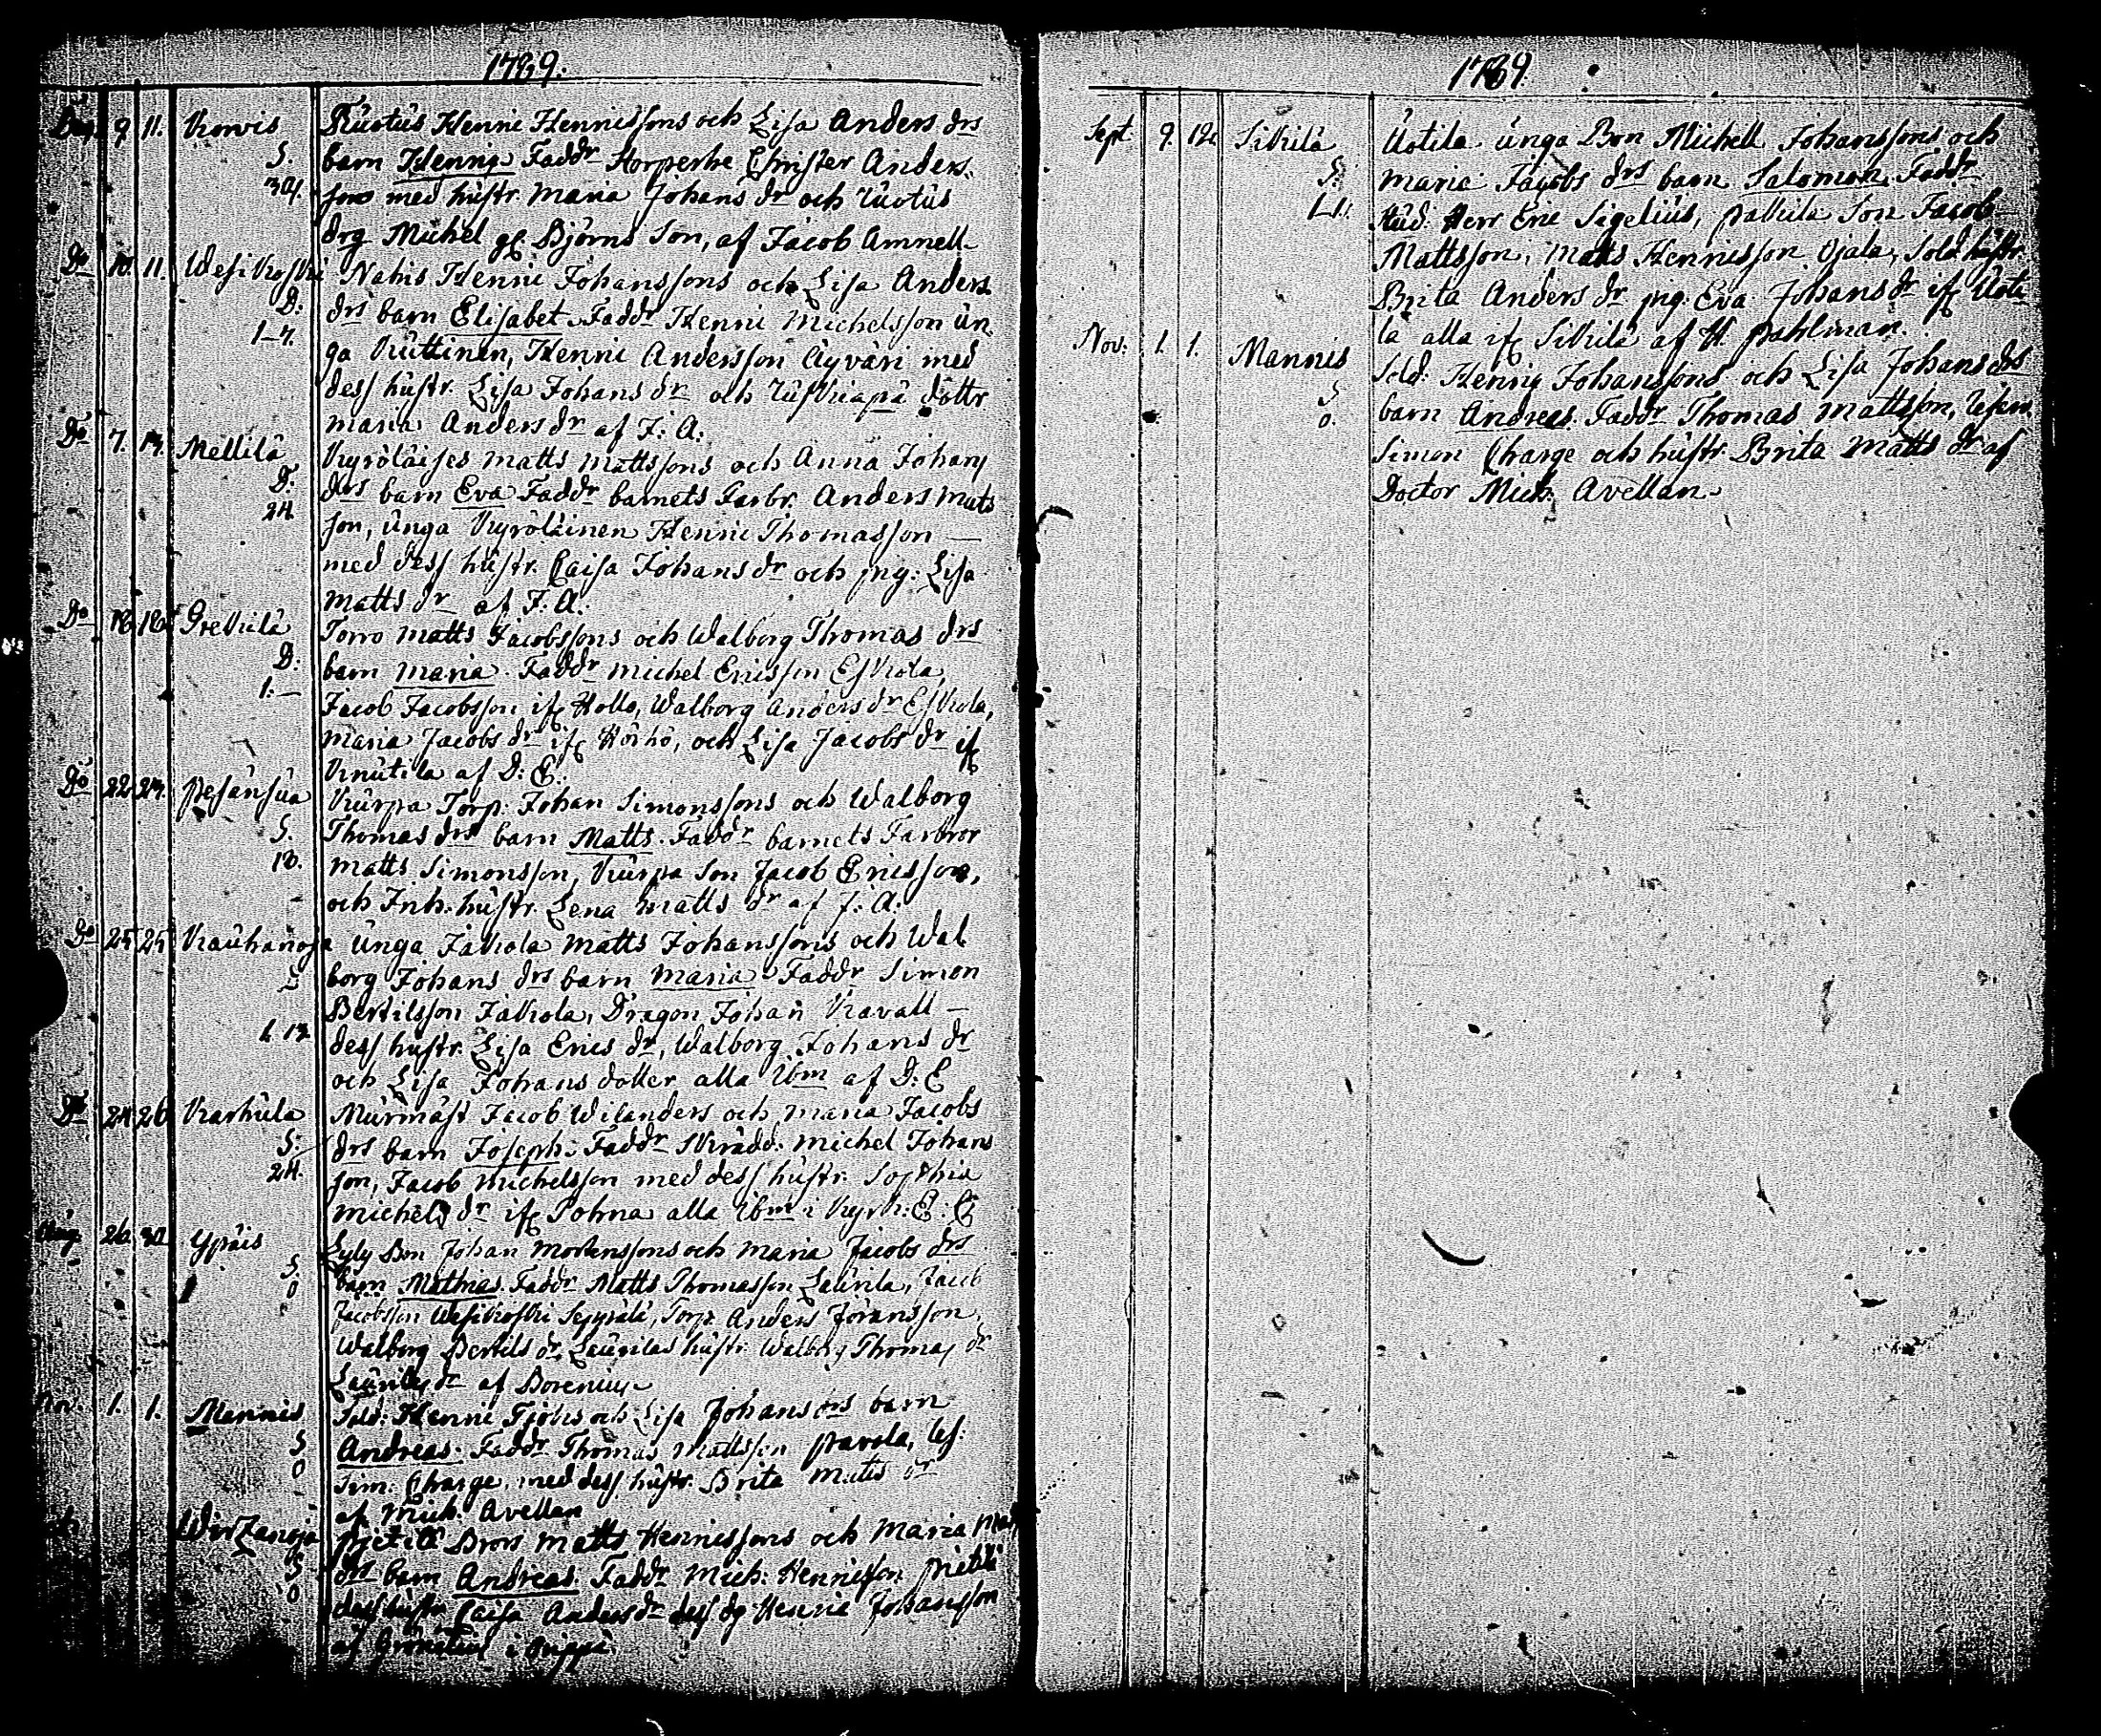 1789.
Dec. 9. 11. Korvis Ruotus Henric Henricssons och Lisa Anders drs
S. barn Henric Faddr Korperke Christer Anders-
34. son med hustr. Maria Johans dr och Ruotus
drg Michel gl. Björns Son, af Jacob Amnell
Do 10. 11. Wesikoski Nahis Henric Johanssons och Lisa Anders
D: drs barn Elisabet. Faddr Henric Michelsson un-
1-7. ga Kuttinen, Henric Andersson Äyväri med
dess hustr. Lisa Johans dr och Ruskiapä dottr
Maria Anders dr af J: A:
Do 7. 13. Mellilä Kyröläises Matts Mattssons och Anna Johans
D: drs barn Eva Faddr barnets Farbr. Anders Mats
24. son, unga Kyröläinen Henric Thomasson
med dess hustr. Caisa Johans dr och pig: Lisa
Matts dr af J: A:
Do 18 18 Grekilä Torro Matts Jacobssons och Walborg Thomas drs
D: barn Maria. Faddr Michel Ericsson Eskola,
1.- Jacob Jacobsson ifr Hollo, Walborg Anders dr Eskola,
Maria Jacobs dr ifr Körkö, och Lisa Jacobs dr ifr
Knutila af D: E:
Do 22 27. Pesänsuo Kurpa Torp. Johan Simonssons och Walborg
S. Thomas drs barn Matts. Faddr barnets Farbror
18. Matts Simonsson, Kurpa Son Jacob Ericsson,
och Inh: hustr. Lena Matts dr af J: A:
Do 25 25 Kauhanoja unga Jakola Matts Johanssons och Wal
borg Johans drs barn Maria. Faddr Simon
Bertilsson Jakola, Dragon Johan Kavall
1. 13 dess hustr. Lisa Erics dr, Walborg Johans dr
och Lisa Johans dotter alla ibm af D: E
Do 24 26 Karhula Murmäst Jacob Wilanders och Maria Jacobs
S: drs barn Joseph. Faddr Skrädd: Michel Johans
24. son, Jacob Michelsson med dess hustr. Sophia
Michels dr ifr Pohna alla ibm i Kyrk: E: E
26. 30 Ypäis Lyly Bon Johan Mortenssons och Maria Jacobs drs
S barn Mathias. Faddr Matts Thomasson Laurila, Jacob
0 Jacobsson Wesikoski Seppälä, Torp. Anders Göransson,
Walborg Bertils dr, Laurilas hustr. Walborg Thomas dr
Laurilas dr af Borenius
Nov. 1. 1. Mannis Sold: Henric Fjohs och Lisa Johans drs barn
S Andreas. Faddr Thomas Mattsson Pavola,
0 Sim: Charge, med dess hustr. Brita Matts dr
af Mich. Avellan
Wirzanoja Pietilä Brors Matts Henricssons och Maria
S drs barn Andreas Faddr Mich: Henricsson Pietilä
0 dess hustr Caisa Anders dr dess dg Henric Johansson
af i
1789.
Sept 9. 12. Sikilä Uotila unga Bon Michell Johanssons och
S: Maria Jacobs drs barn Salomon. Faddr
1-1: Stud: Herr Eric Sigelius, Pakila Son Jacob
Mattsson, Matts Henricsson Ojala, Sold hustr.
Brita Anders dr pig: Eva Johans dr ifr Uoti-
la alla ifr Sikilä af H. Pahlman.
Nov: 1. 1. Mannis Sold: Henric Johanssons och Lisa Johans drs
S barn Andreas. Faddr Thomas Mattsson,
0. Simon Charge och hustr. Brita Matts dr af
Doctor Mich: Avellan